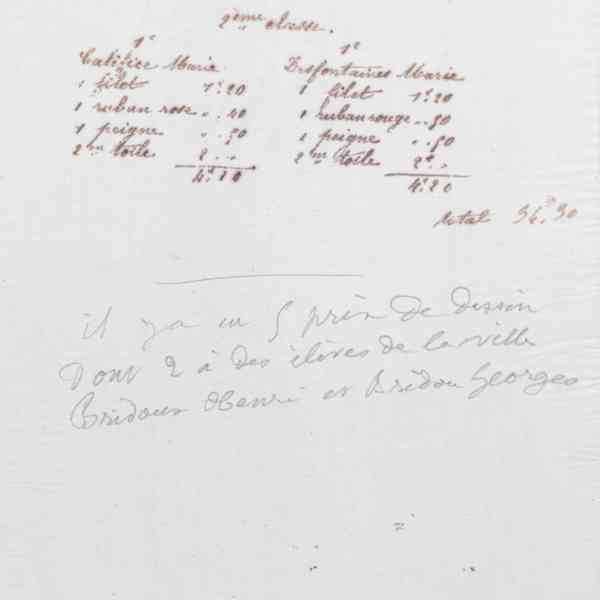 2ème classe.
1e
Califice Marie
1 filet 1f.20
1 ruban rose ". 40
1 peigne ". 50
2m toile 2 " "
4f.10
1e
Desfontaines Marie
1 filet 1f.20
1 ruban rouge ". 50
1 peigne ". 50
2m toile 2f. "
4f.20
total 34f.30
il y a eu 5 prix de dessin
Dont 2 à des élèves de la ville
Bridoux Henri et Bridou Georges